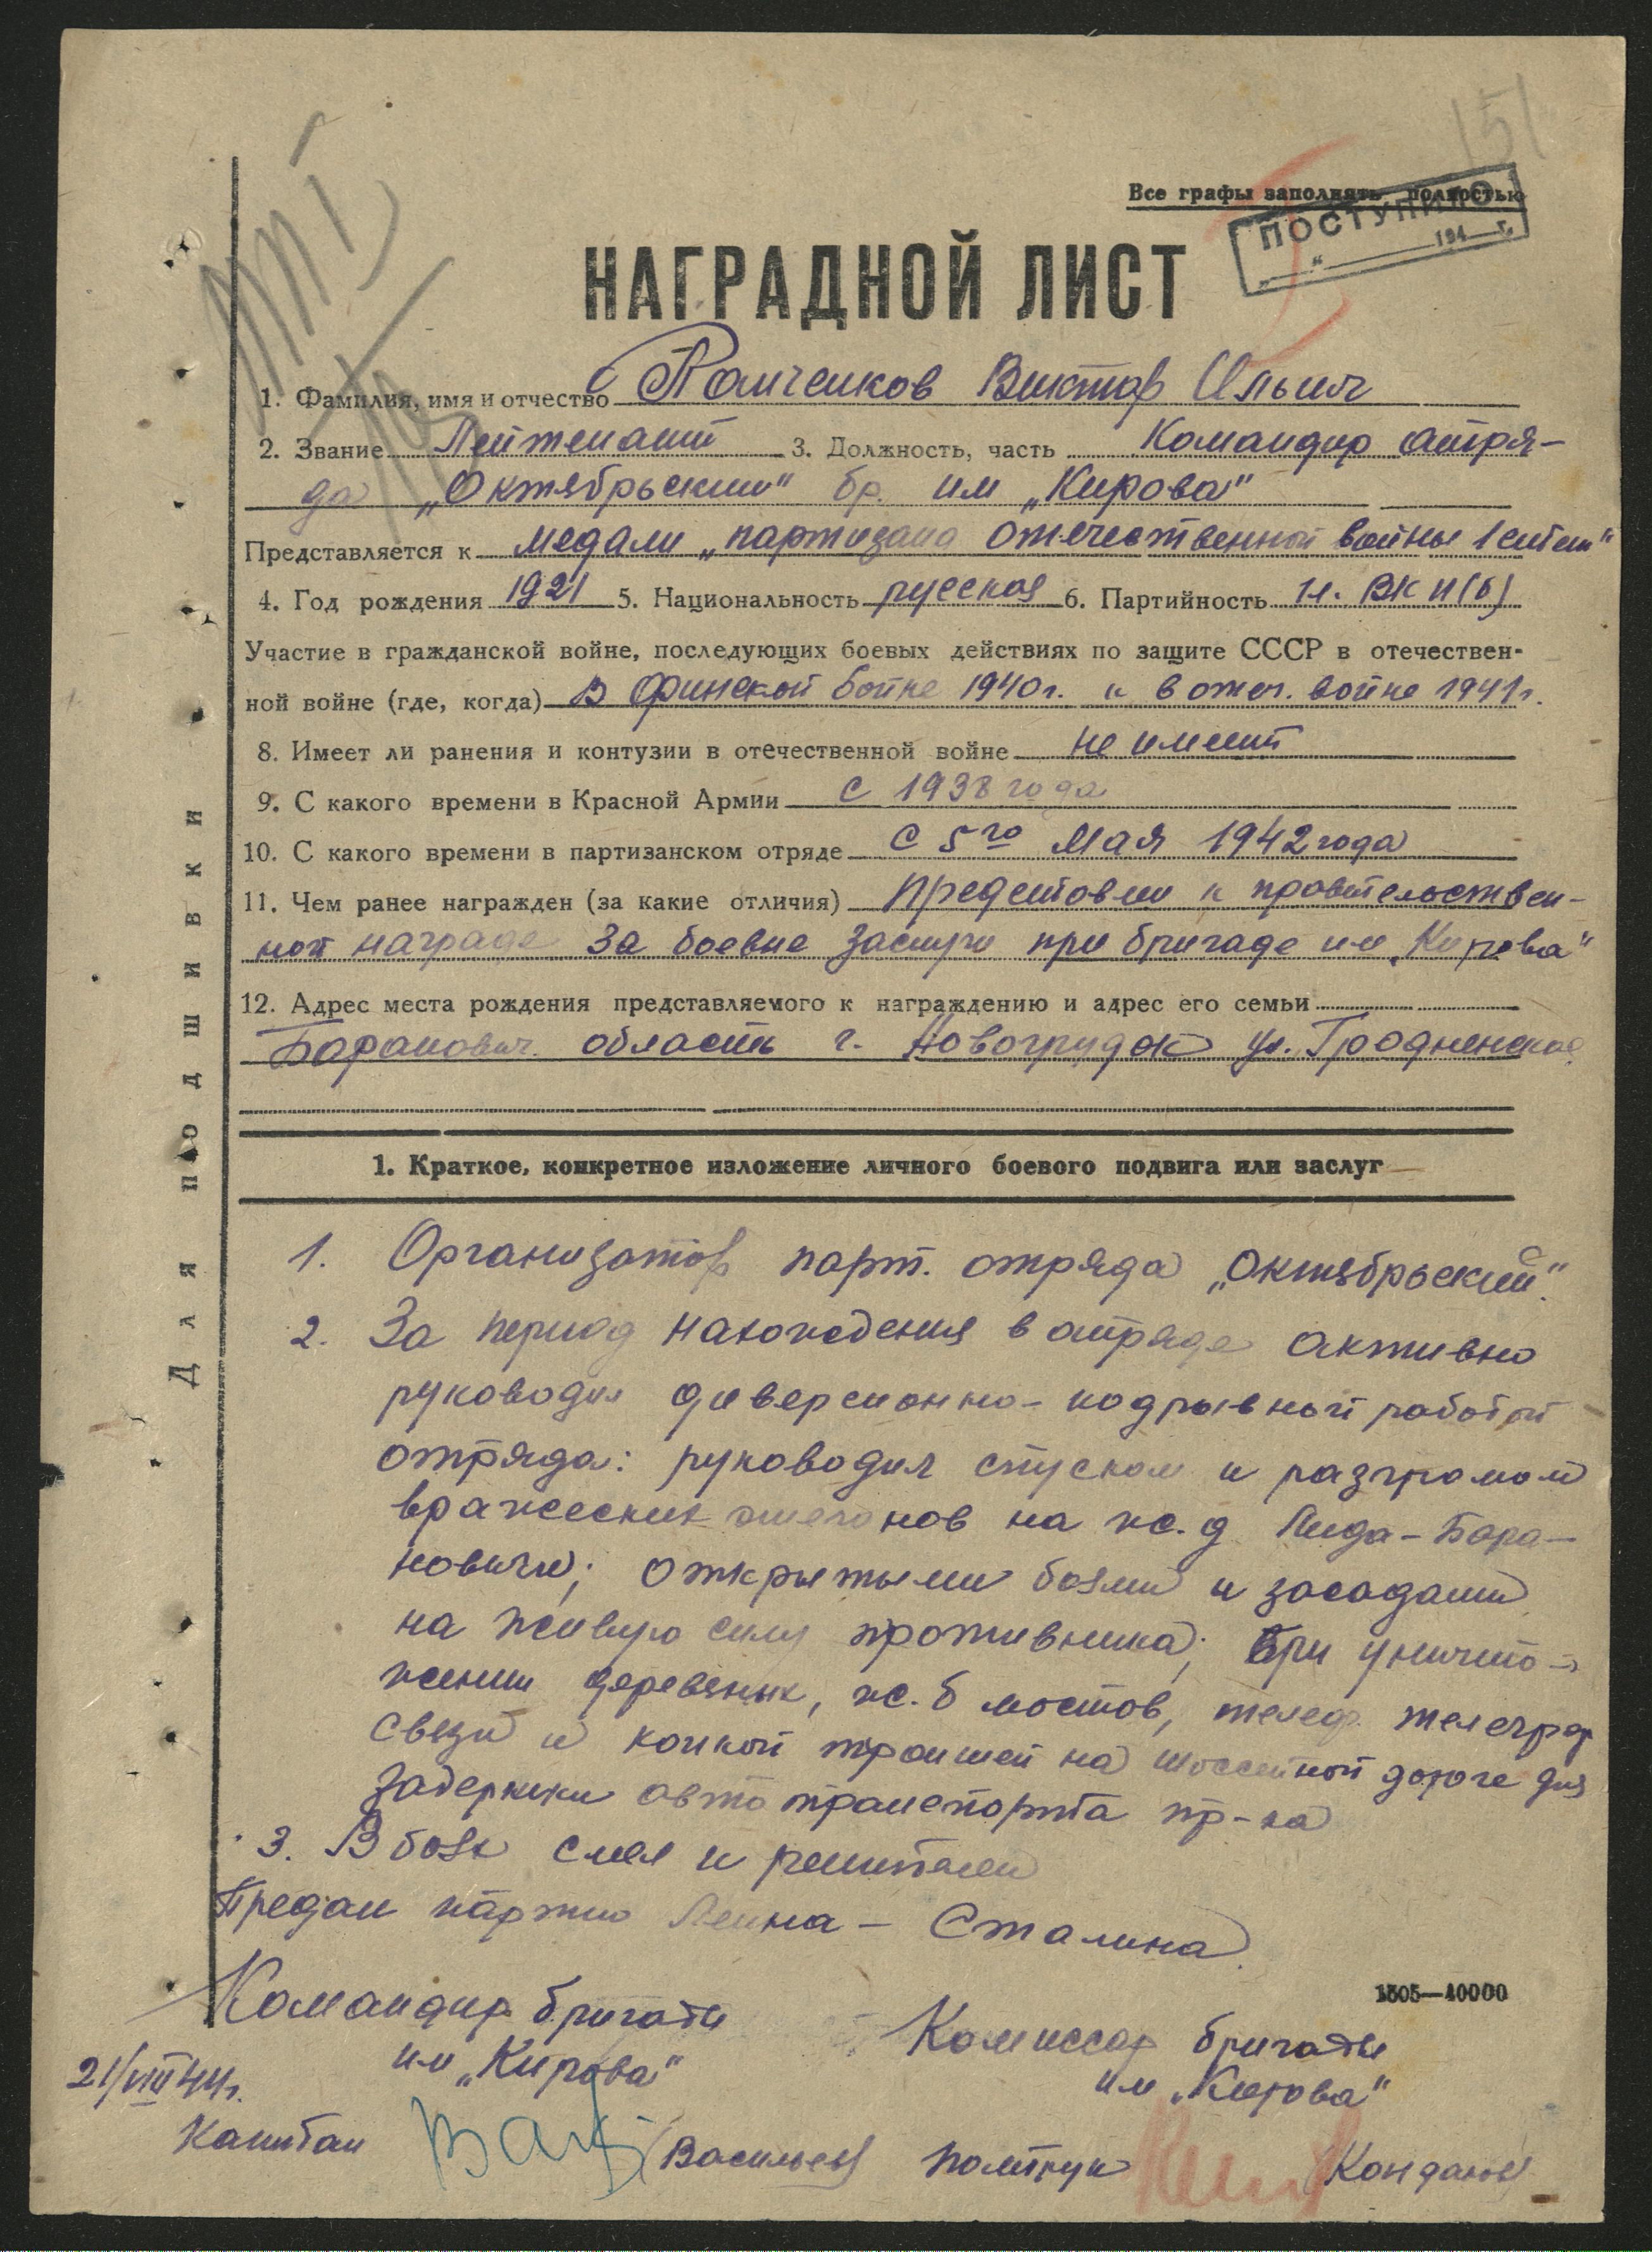 151
Все графы заполнять полностью
ПОСТУПИЛО
„ “ 194 г.
НАГРАДНОЙ ЛИСТ
1. Фамилия, имя и отчество Панченков Виктор Ильич
2. Звание Лейтенант 3. Должность, часть Командир отря-
да „Октябрьский“ бр. им „Кирова“
Представляется к медали „партизана отечественной войны 1 степ“
4. Год рождения 1921 5. Национальность русская 6. Партийность чл. ВКП(б)
Участие в гражданской войне, последующих боевых действиях по защите СССР в отечествен-
ной войне (где, когда) В Финской войне 1940 г. и в отеч. войне 1941 г.
8. Имеет ли ранения и контузии в отечественной войне не имеет
9. С какого времени в Красной Армии с 1938 года
10. С какого времени в партизанском отряде с 5го Мая 1942 года
11. Чем ранее награжден (за какие отличия) Представлен к правительствен-
ной награде за боевые заслуги при бригаде им „Кирова“
12. Адрес места рождения представляемого к награждению и адрес его семьи
Баранович. область г. Новогрудок ул. Гродненская
Для подшивки
1. Краткое, конкретное изложение личного боевого подвига или заслуг
1. Организатор парт. отряда „Октябрьский“.
2. За период нахождения в отряде активно
руководил диверсионно-подрывной работой
отряда: руководил спуском и разгромом
вражеских эшелонов на ж.д Лида-Бара-
новичи; открытыми боями и засадами
на живую силу противника; При уничто-
жении деревяных, ж.б мостов, телеф. телеграф
связи и копкой траншей на шоссейной дороге для
задержки автотранспорта пр-ка
3. В боях смел и решителен
Предан партии Ленина - Сталина.
1505—40000
Командир бригады
им „Кирова“
Комиссар бригады
им „Кирова“
21/VIII 44 г.
Капитан (Васильев)
политрук (Кондаков)